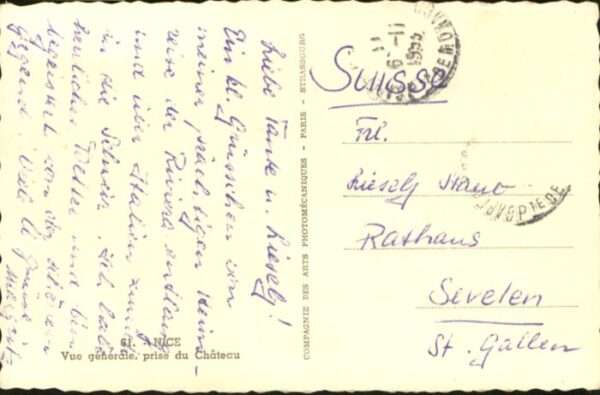 Liebe Tante u. Lieselj!
Ein kl. Grüsschen von
meiner Heim-
reise der Riviera entlang
und über Italien zurück
in die Schweiz. Ich habe
herrliches Wetter und bin
begeistert von der
Gegend. Viele l. Grüsse
Margrit
61. NICE
Vue générale, prise du Château
COMPAGNIE DES ARTS PHOTOMÉCANIQUES - PARIS - STRASBOURG
Suisse
Frl.
Lieselj
Rathaus
Sevelen
St. Gallen